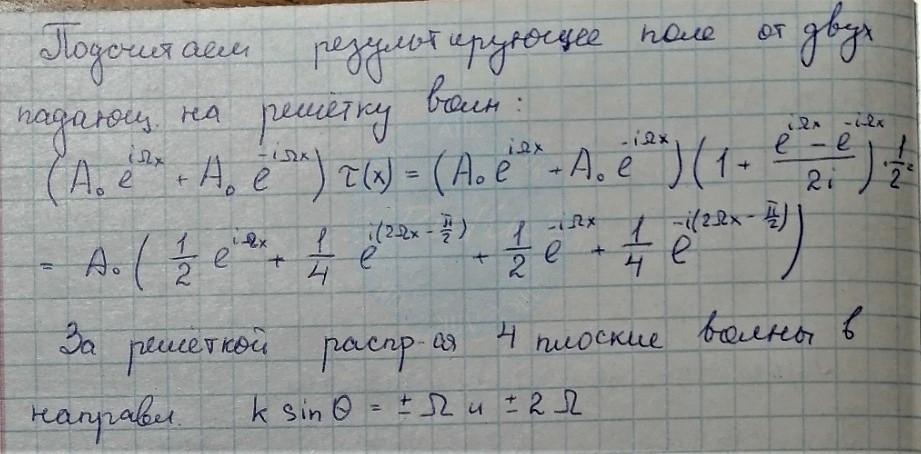 Подсчитаем результирующее поле от двух
падающ. на решётку волн:
(A₀ e^{iΩx} + A₀ e^{-iΩx}) τ(x) = (A₀ e^{iΩx} + A₀ e^{-iΩx}) (1 + \frac{e^{iΩx} - e^{-iΩx}}{2i}) · \frac{1}{2} =
= A₀ ( \frac{1}{2} e^{iΩx} + \frac{1}{4} e^{i(2Ωx - \frac{π}{2})} + \frac{1}{2} e^{-iΩx} + \frac{1}{4} e^{-i(2Ωx - \frac{π}{2})} )
За решёткой распр-ся 4 плоские волны в
направл. k sin θ = ± Ω и ± 2 Ω